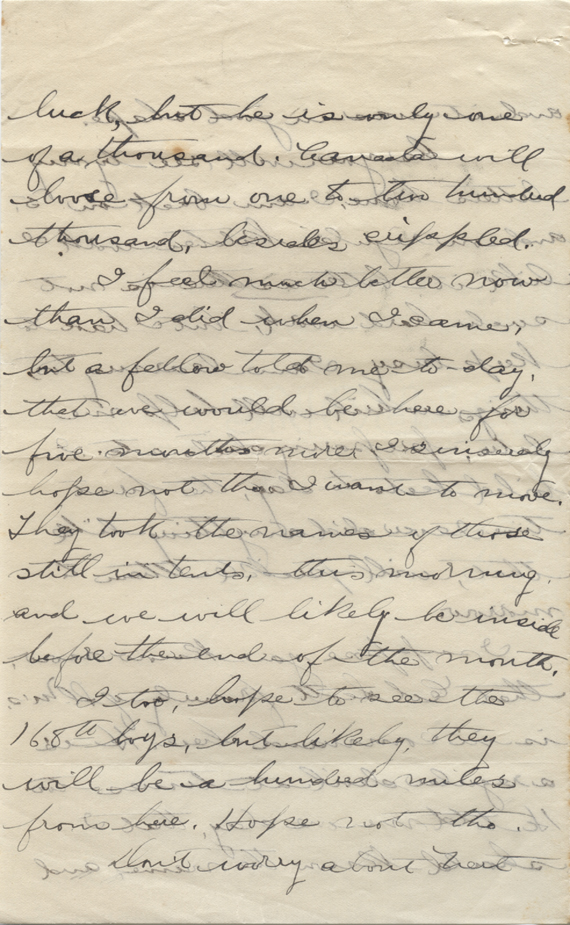 luck, but he is only one
of a thousand. Canada will
loose from one to two hundred
thousand, besides crippled.
I feel much better now
than I did when I came,
but a fellow told me to-day,
that we would be here for
five months more. I sincerely
hope not tho I want to move.
They took the names of those
still in tents, this morning,
and we will likely be inside
before the end of the month.
I too, hope to see the
168th boys, but likely, they
will be a hundred miles
from here. Hope not tho.
Don't worry about